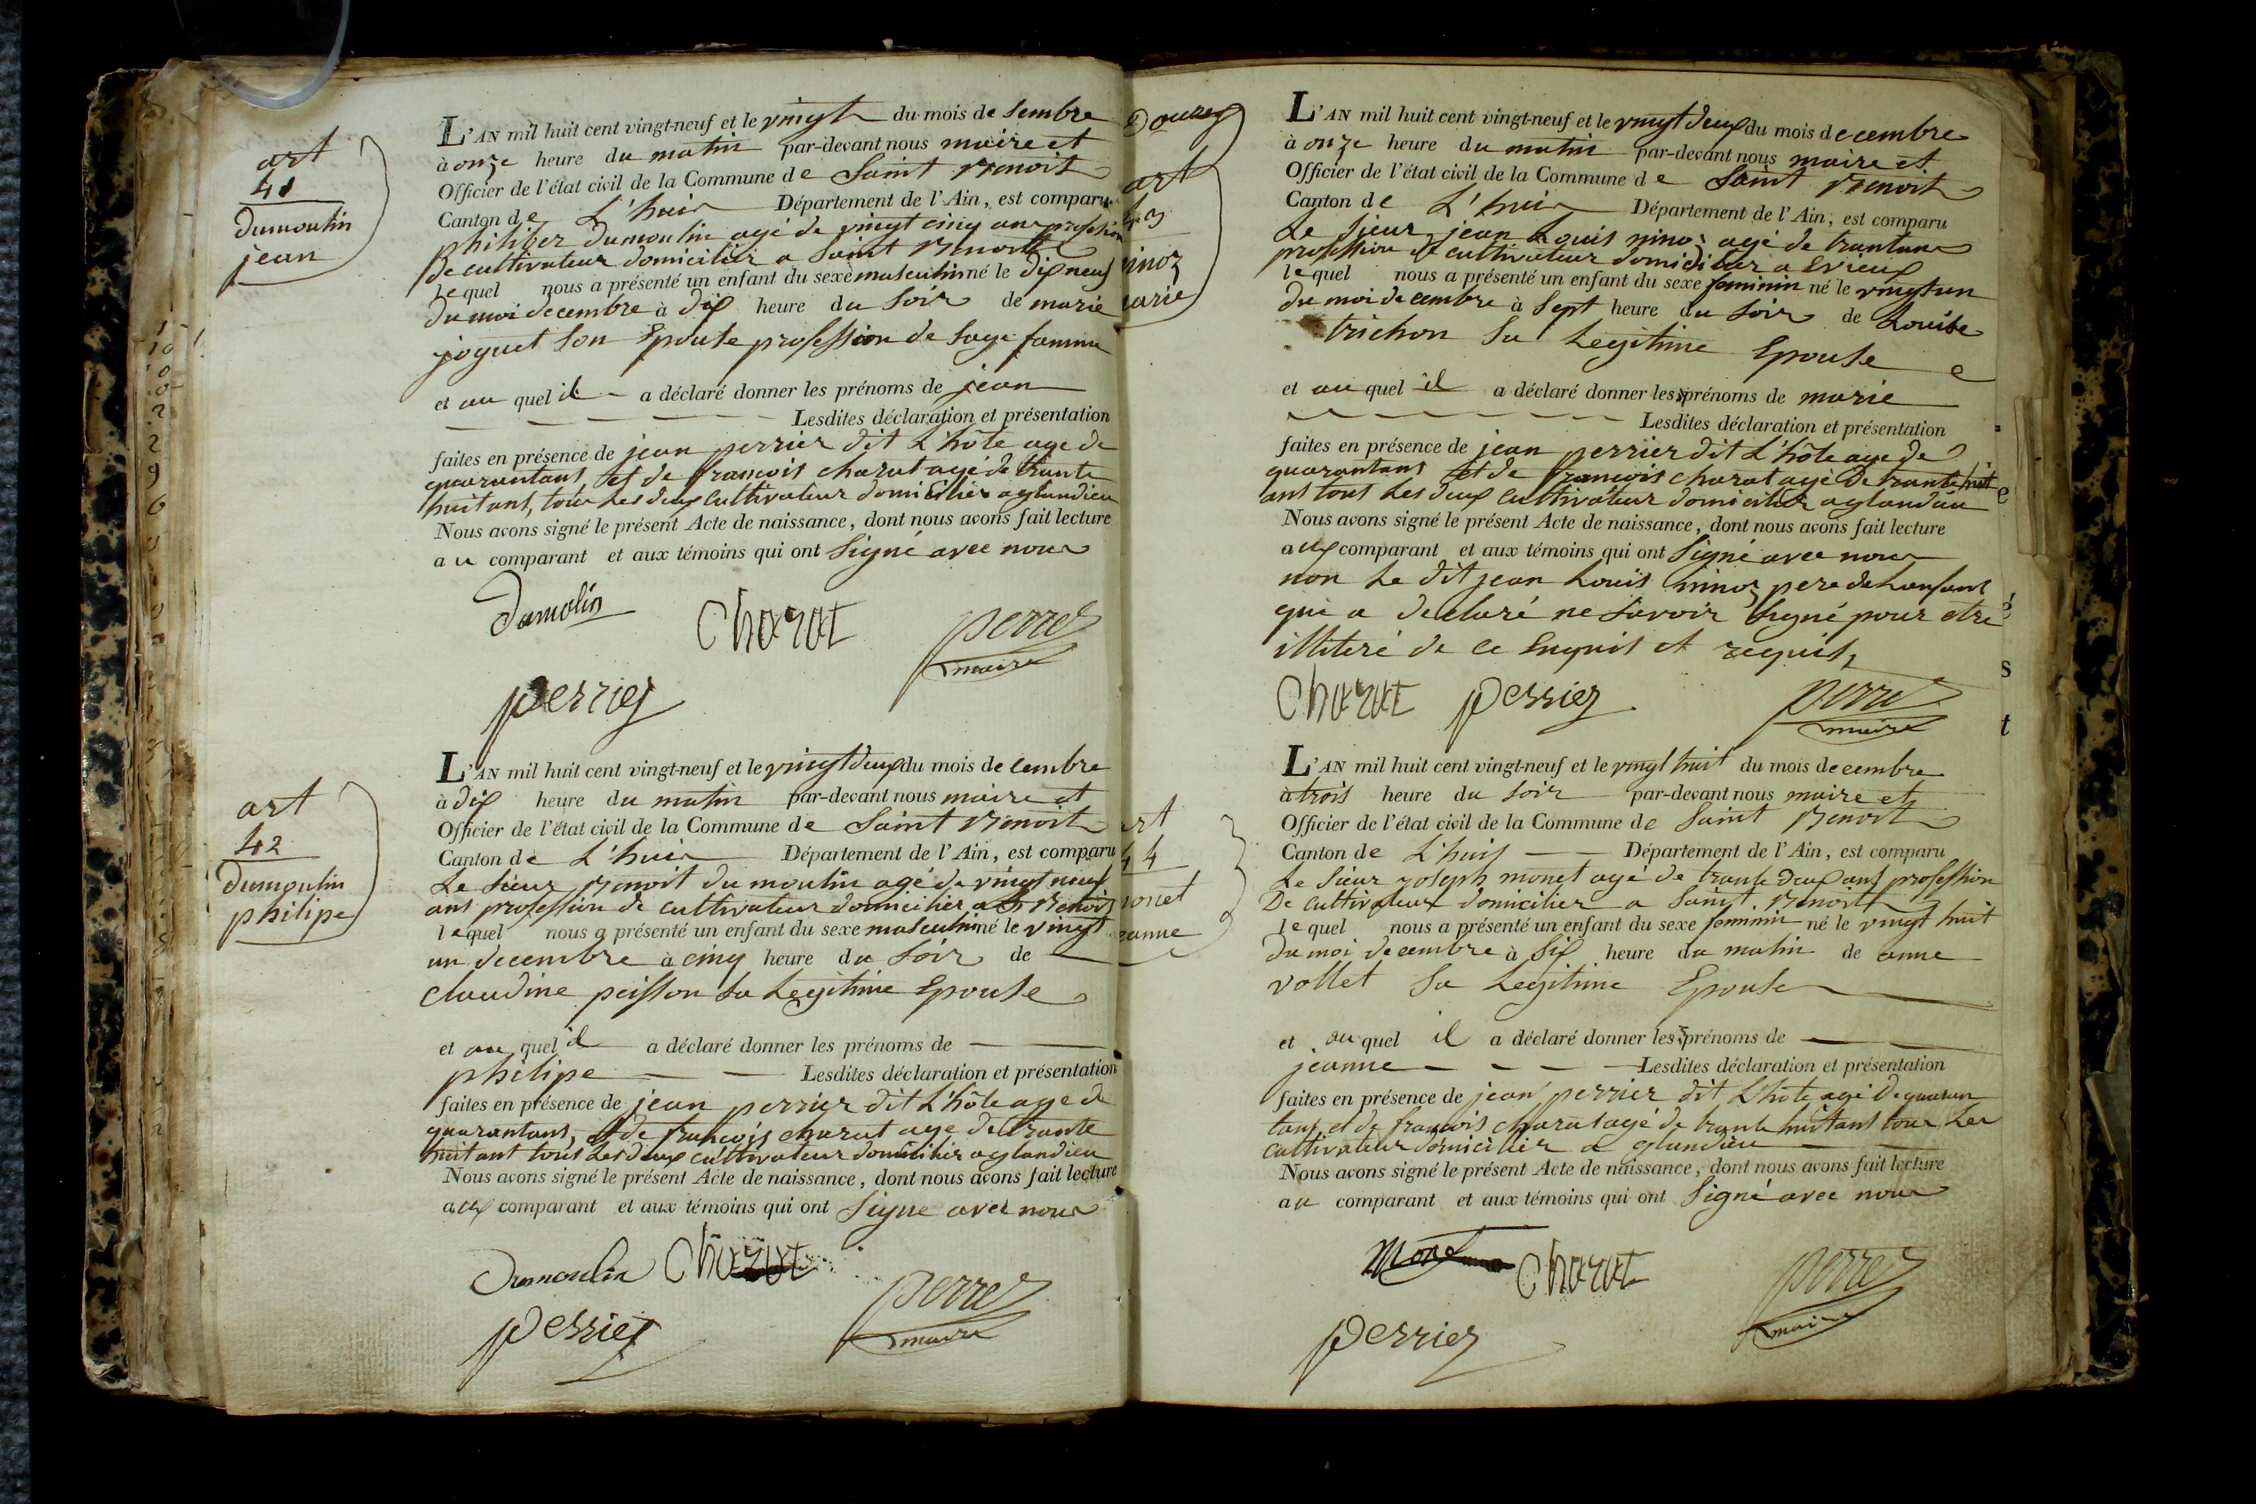 art
41
dumoulin
jean
L'AN mil huit cent vingt-neuf et le vingt du mois de sembre
à onze heure du matin par-devant nous maire et
Officier de l'état civil de la Commune de Saint Benoit
Canton de L'huis Département de l'Ain, est comparu
philiber dumoulin agé de vingt cinq ans profession
De cultivateur domicilier a Saint Benoit
lequel nous a présenté un enfant du sexe masculin né le dix neuf
du moi decembre à dix heure du Soir de marie
joguet son Epouse profession de sage famme
et au quel il a déclaré donner les prénoms de jean
Lesdites déclaration et présentation
faites en présence de jean perrier dit L'hôte age de
quarantans, et de francois charat agé de trante
huitant, tous Les deux cultivateur domicilier a glandieu
Nous avons signé le présent Acte de naissance, dont nous avons fait lecture
au comparant et aux témoins qui ont Signé avec nous
Dumolin
Charat
perret
maire
perrier
art
42
dumoulin
philipe
L'AN mil huit cent vingt-neuf et le vingt deux du mois de cembre
à dix heure du matin par-devant nous maire et
Officier de l'état civil de la Commune de Saint Benoit
Canton de L'huis Département de l'Ain, est comparu
Le Sieur Benoit du moulin agé de vingt neuf
ans profession de cultivateur domicilier a St Benoit
lequel nous a présenté un enfant du sexe masculin né le vingt
un decembre à cinq heure du Soir de
claudine poisson Sa Legitime Epouse
et au quel il a déclaré donner les prénoms de
philipe Lesdites déclaration et présentation
faites en présence de jean perrier dit L'hôte age de
quarantans, et de francois charat age de trante
huitant tous Les deux cultivateur domicilier a glandieu
Nous avons signé le présent Acte de naissance, dont nous avons fait lecture
aux comparant et aux témoins qui ont Signe avec nous
Dumoulin Charat
perret
maire
perrier
art
43
ninoz
marie
L'AN mil huit cent vingt-neuf et le vingt deux du mois decembre
à onze heure du matin par-devant nous maire et
Officier de l'état civil de la Commune de Saint Benoit
Canton de L'huis Département de l'Ain, est comparu
Le Sieur jean Louis ninoz agé de trantans
profession de cultivateur domicilier a Evieux
lequel nous a présenté un enfant du sexe feminin né le vingt un
du moi decembre à Sept heure du Soir de Louise
trichon Sa Legitime Epouse
et au quel il a déclaré donner les prénoms de marie
Lesdites déclaration et présentation
faites en présence de jean perrier dit L'hôte age de
quarantans et de francois charat agé De trante huit
ans tous Les deux cultivateur domicilier a glandieu
Nous avons signé le présent Acte de naissance, dont nous avons fait lecture
aux comparant et aux témoins qui ont Signé avec nous
non Le dit jean Louis ninoz pere de Lanfant
qui a declaré ne Savoir Signé pour etre
illiteré de ce Enquis et requis,
Charat perrier
perret
maire
art
44
monet
jeanne
L'AN mil huit cent vingt-neuf et le vingt huit du mois decembre
à trois heure du Soir par-devant nous maire et
Officier de l'état civil de la Commune de Saint Benoit
Canton de L'huis Département de l'Ain, est comparu
Le Sieur joseph monet agé de trante deux ans profession
De cultivateur domicilier a Saint Benoit
lequel nous a présenté un enfant du sexe feminin né le vingt huit
Du moi decembre à Six heure du matin de anne
vollet Sa Legitime Epouse
et au quel il a déclaré donner les prénoms de
jeanne Lesdites déclaration et présentation
faites en présence de jean perrier dit L'hôte agé de quaran
tans et de francois charat agé de trante huitans tous Les
cultivateur domicilier a glandieu
Nous avons signé le présent Acte de naissance, dont nous avons fait lecture
au comparant et aux témoins qui ont Signé avec nous
Charat
perret
maire
perrier